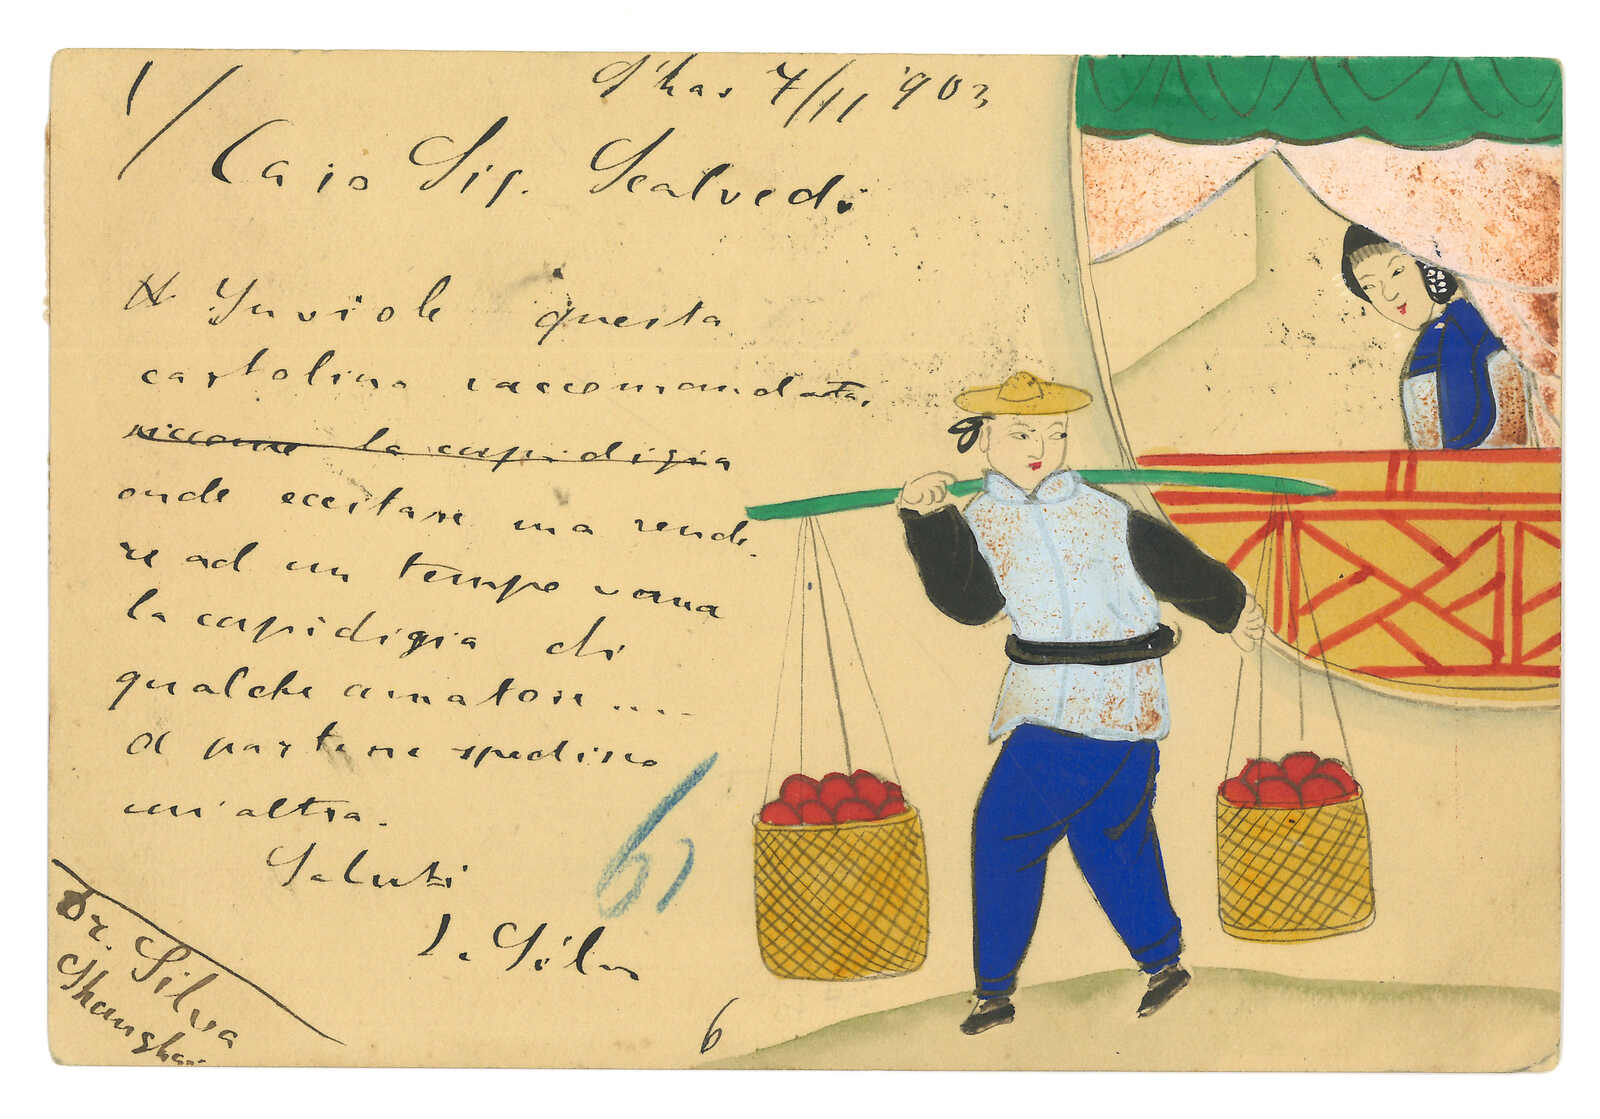 1/
S'hai 7/11 1903
Caro Sig. Scalvedi
Inviole questa
cartolina raccomandata,
siccome la cupidigia
onde eccitare ma rende-
re ad un tempo vana
la cupidigia di
qualche amatore ....
A parte ne spedisco
un'altra.
Saluti
L. Silva
61
6
Dr. Silva
Shanghai